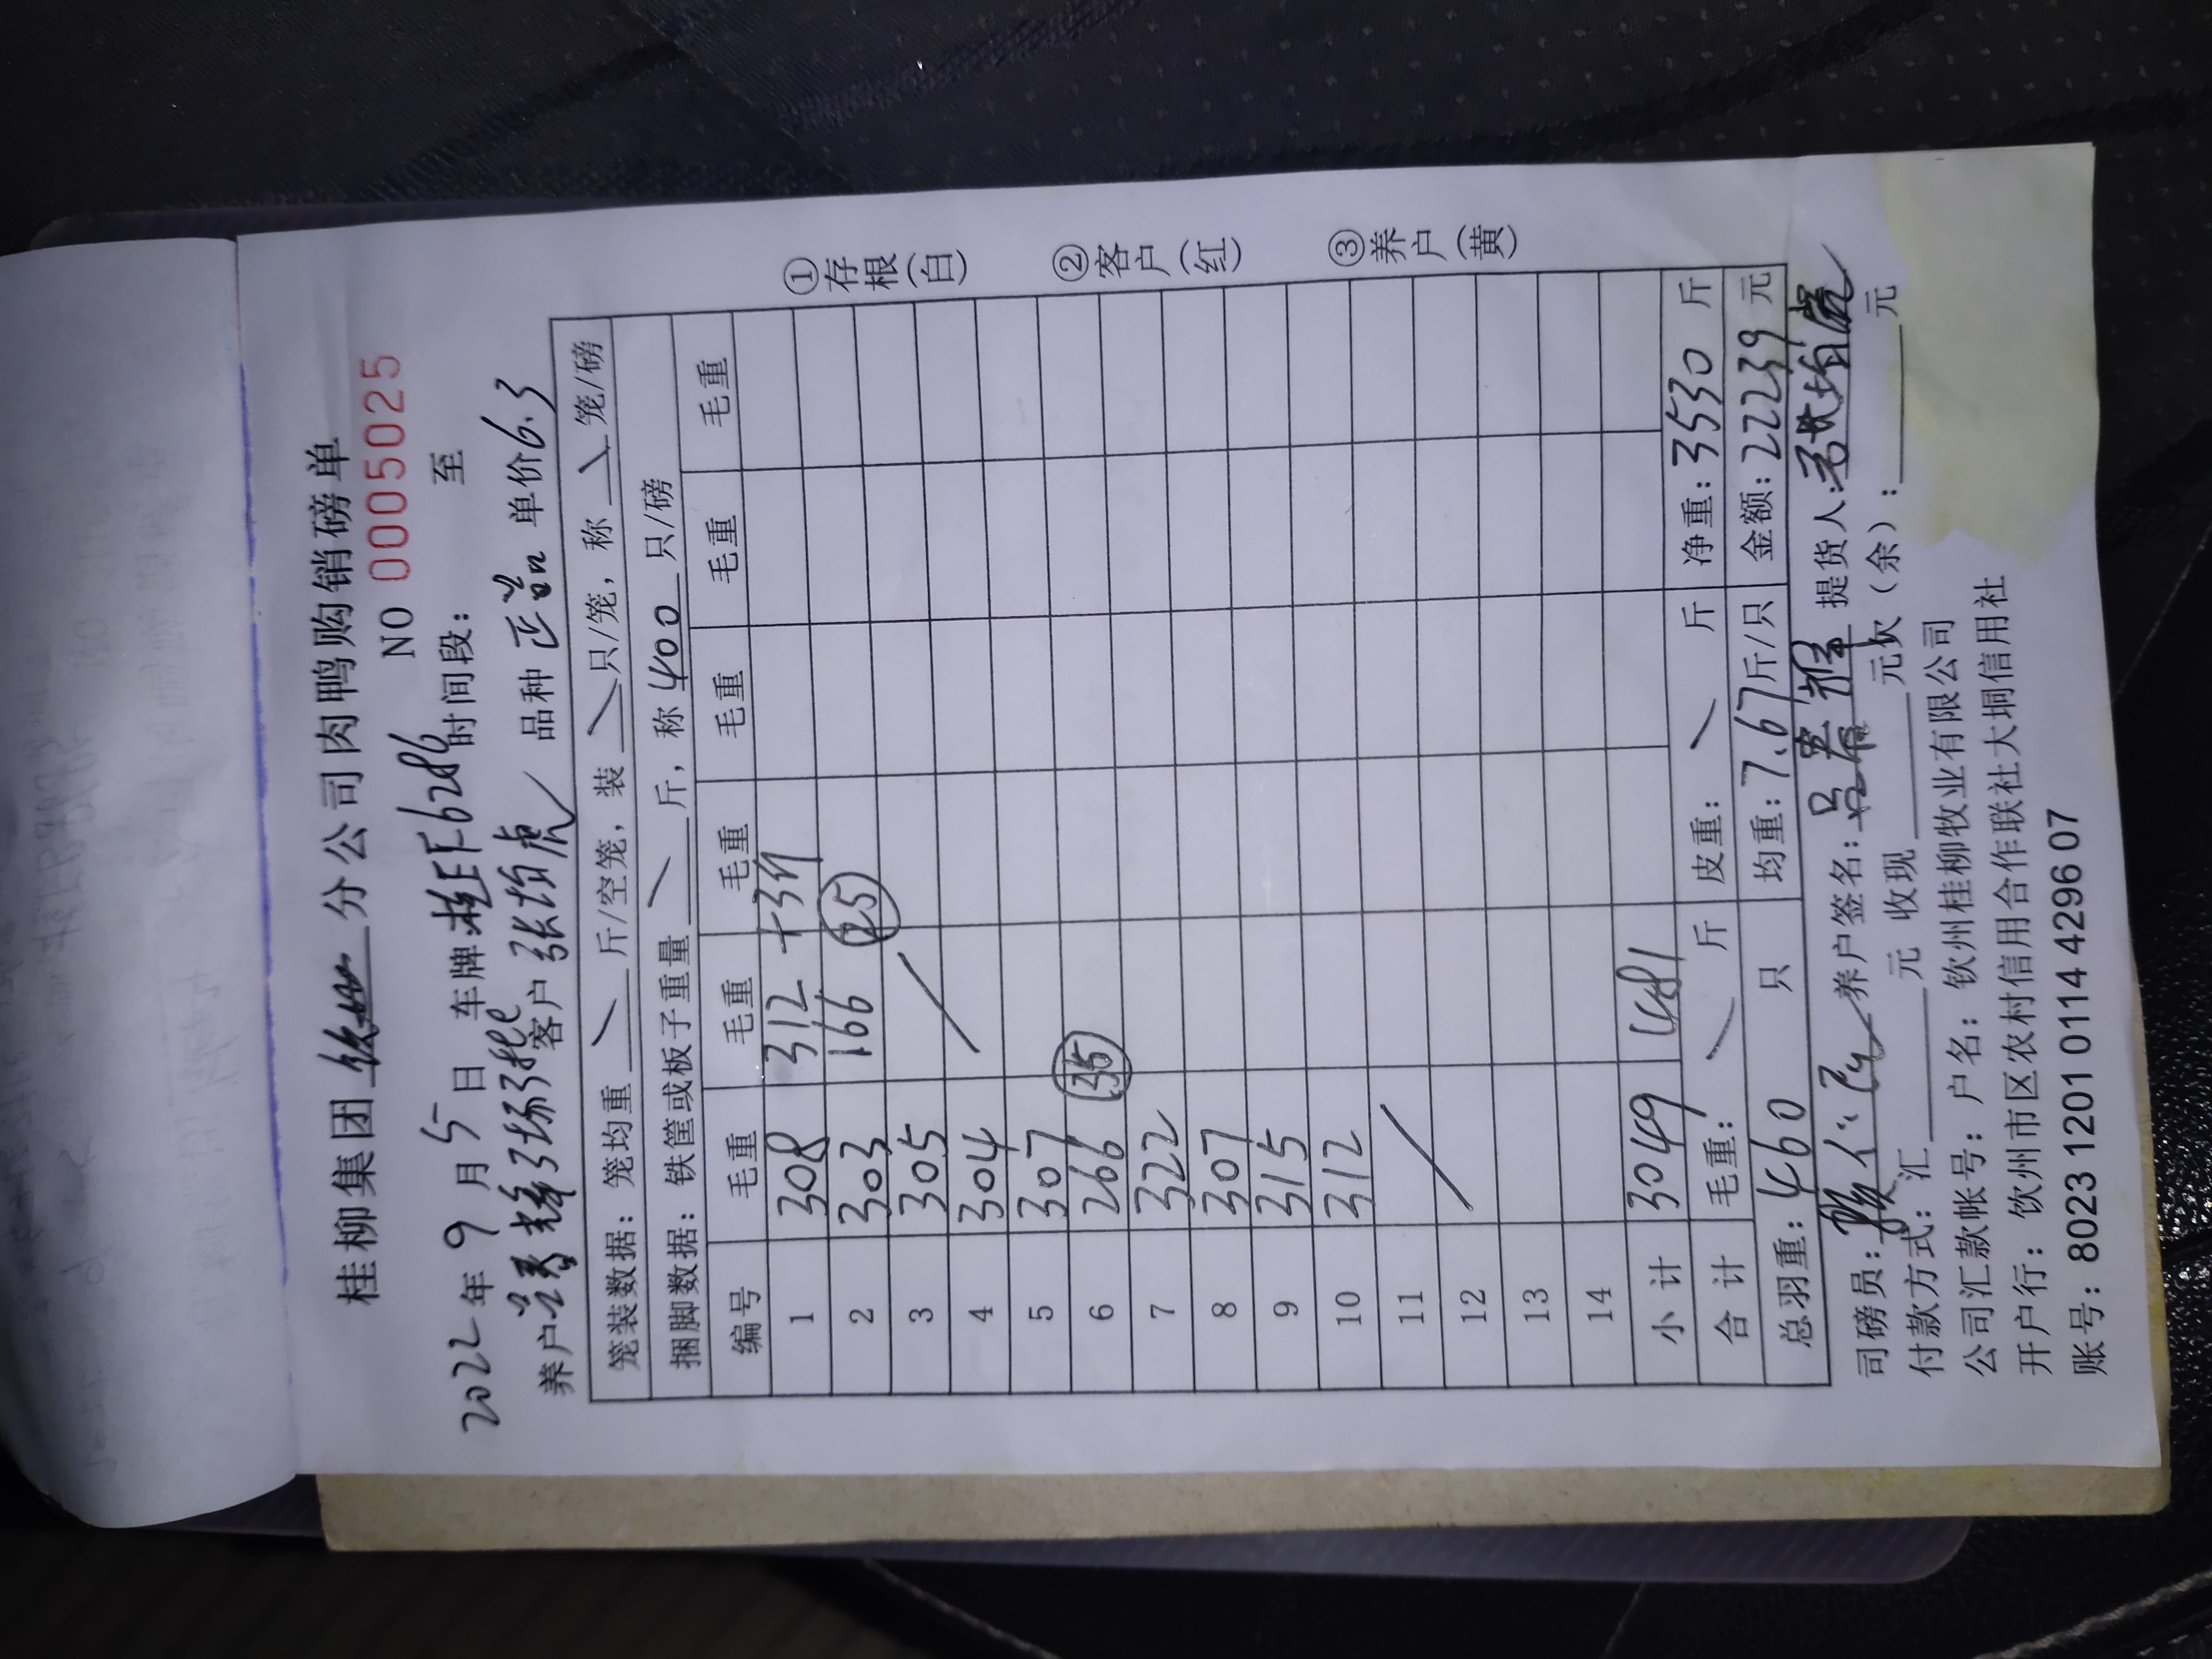 桂柳集团 钦州 分公司肉鸭购销磅单
NO 0005025
2022年9月5日 车牌桂EF6286 时间段： 至
养户 客户 张均虎 品种 正品 单价6.3
笼装数据：笼均重 斤/空笼，装 只/笼，称 笼/磅
捆脚数据：铁筐或板子重量 斤，称 400 只/磅
编号 毛重 毛重 毛重 毛重 毛重 毛重
1 308 312
2 303 166 25
3 305
4 304
5 307
6 266 35
7 322
8 307
9 315
10 312
11
12
13
14
小计 3049 481
合计 毛重： 斤 皮重： 斤 净重：3530 斤
总羽重：460 只 均重：7.67斤/只 金额：22239元
司磅员： 养户签名： 提货人：
付款方式：汇 元 收现 元欠（余）： 元
公司汇款帐号：户名： 钦州桂柳牧业有限公司
开户行： 钦州市区农村信用合作联社大垌信用社
账号：8023 1201 0114 4296 07
①存根（白）
②客户（红）
③养户（黄）